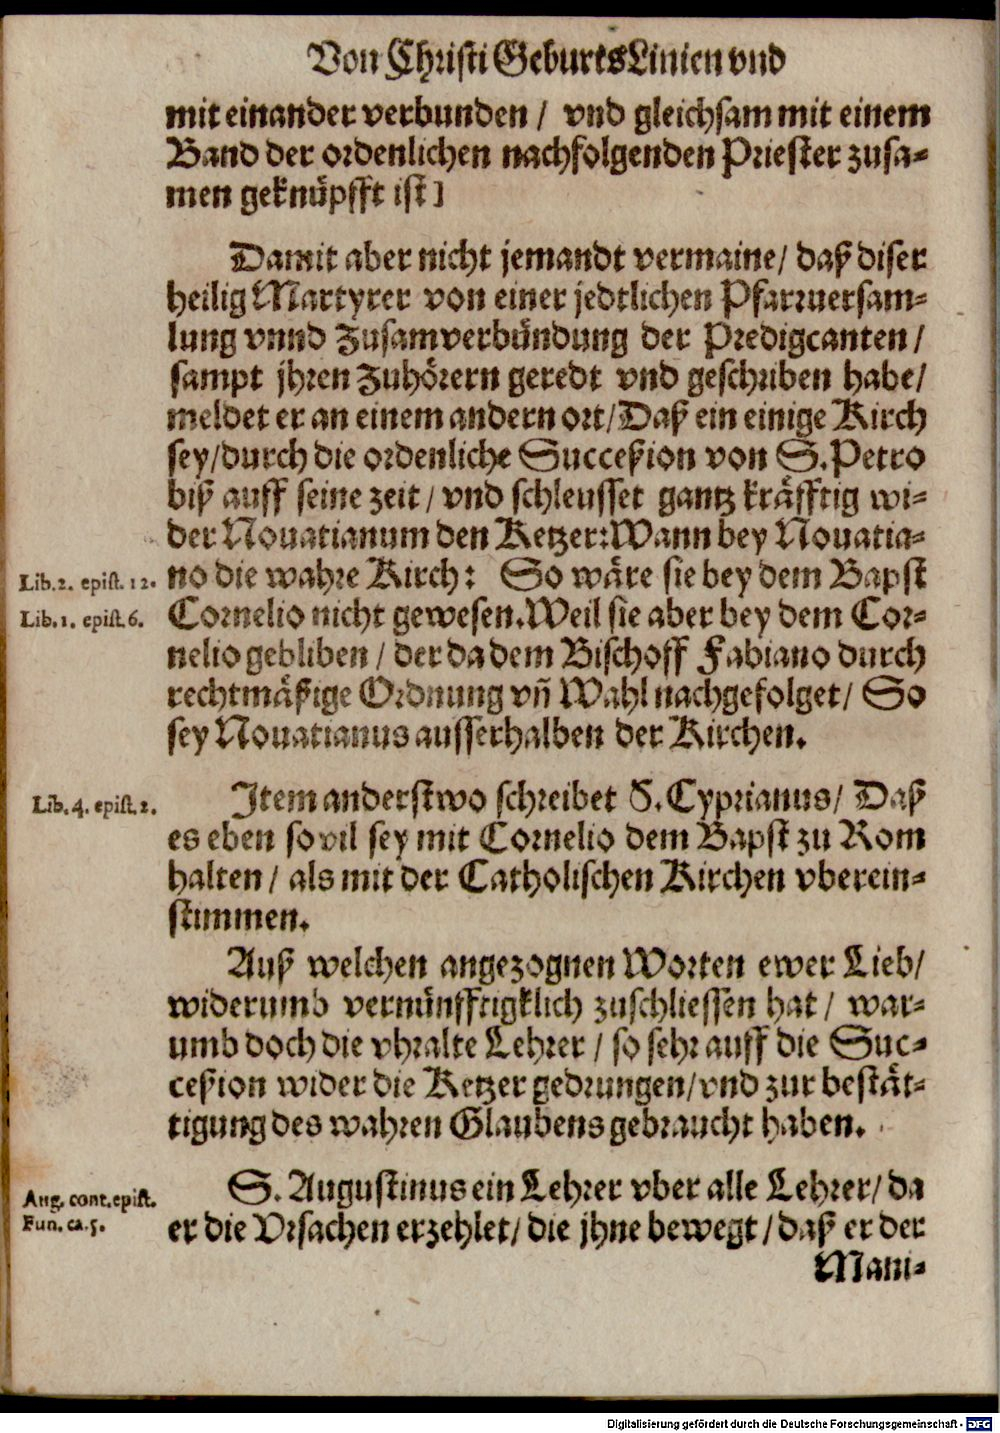 Von Christi Geburts Linien vnd
mit einander verbunden / vnd gleichsam mit einem
Band der ordenlichen nachfolgenden Priester zusa-
men geknüpfft ist]
Damit aber nicht jemandt vermaine / daß diser
heilig Martyrer von einer jedtlichen Pfarruersam-
lung vnnd Zusamverbündung der Predigcanten /
sampt jhren Zuhörern geredt vnd geschriben habe /
meldet er an einem andern ort / Daß ein einige Kirch
sey / durch die ordenliche Succeßion von S. Petro
biß auff seine zeit / vnd schleusset gantz kräfftig wi-
der Nouatianum den Ketzer: Wann bey Nouatia-
Lib. 2. epist. 12. no die wahre Kirch: So wäre sie bey dem Bapst
Lib. 1. epist. 6. Cornelio nicht gewesen. Weil sie aber bey dem Cor-
nelio gebliben / der da dem Bischoff Fabiano durch
rechtmäßige Ordnung vñ Wahl nachgefolget / So
sey Nouatianus ausserhalben der Kirchen.
Lib. 4. epist. 2. Item anderstwo schreibet S. Cyprianus / Daß
es eben so vil sey mit Cornelio dem Bapst zu Rom
halten / als mit der Catholischen Kirchen vberein-
stimmen.
Auß welchen angezognen Worten ewer Lieb /
widerumb vernünfftigklich zuschliessen hat / war-
umb doch die vhralte Lehrer / so sehr auff die Suc-
ceßion wider die Ketzer gedrungen / vnd zur bestät-
tigung des wahren Glaubens gebraucht haben.
Aug. cont. epist. S. Augustinus ein Lehrer vber alle Lehrer / da
Fun. ca. 5. er die Vrsachen erzehlet / die jhne bewegt / daß er der
Mani-
Digitalisierung gefördert durch die Deutsche Forschungsgemeinschaft - DFG